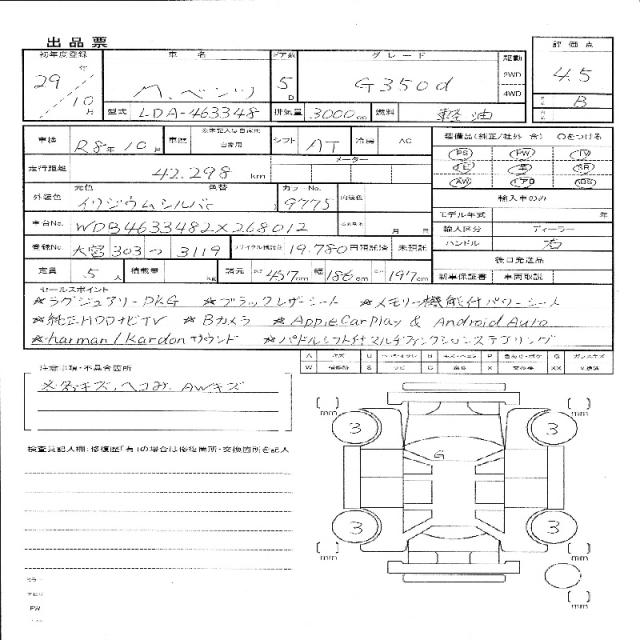 出品票
初年度登録 車名 ドア数 グレード 駆動 評価点
29年 10月 M.ベンツ 5D G350d 2WD 4WD 4.5
型式 LDA-463348 排気量 3000cc 燃料 軽油 B
車検 R8年10月 車歴 自家用 シフト AT 冷房 AC 装備品(純正/社外 含) ○をつける
走行距離 42.298 km メーター PS PW TV
元色 色替 カラーNo. AW エアB
外装色 イリジウムシルバー 9775 内装色 輸入車のみ
車台No. WDB4633482X268012 月 日 モデル年式 年
輸入区分 ディーラー
登録No. 大宮 303 つ 3119 リサイクル預託金 19.780円 預託済 未預託 ハンドル 右
後日発送品
定員 5人 積載量 kg 諸元 長さ 457cm 幅 186cm 高さ 197cm 新車保証書 車両取説
セールスポイント
☆ラグジュアリーPKG ☆ブラックレザーシート ☆メモリー機能付パワーシート
☆純正HDDナビTV ☆Bカメラ ☆Apple CarPlay & Android Auto
☆harman/Kardonサウンド ☆パドルシフト付マルチファンクションステアリング
A キズ U B P G
W S C X XX
注意事項・不具合箇所
AWキズ
検査員記入欄:修復歴「有」の場合は修復箇所・交換箇所を記入
mm mm
3 3
G
3 3
mm mm
mm
PW